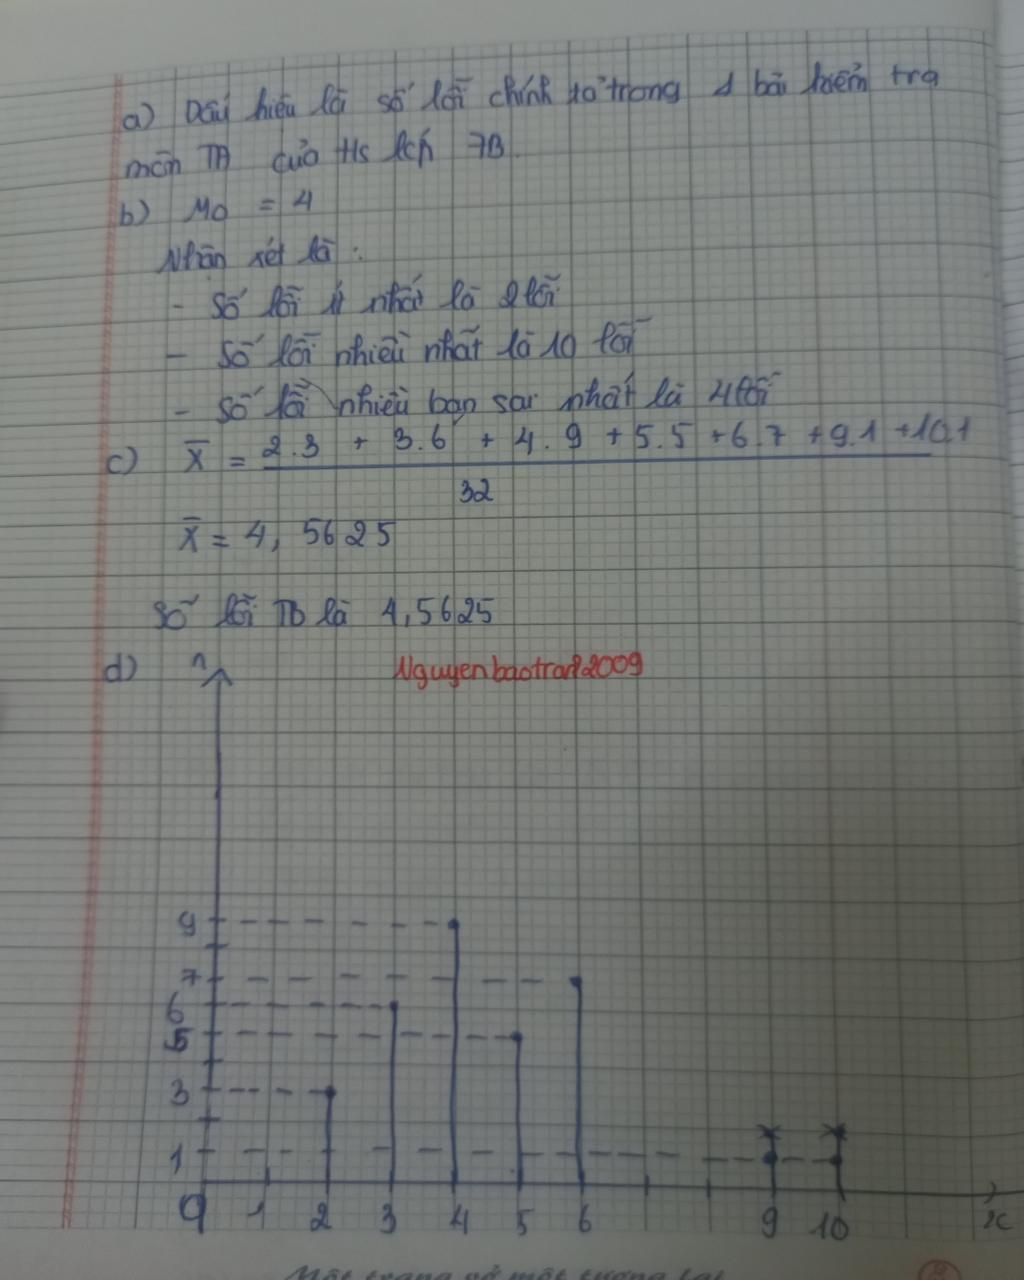 a) Dấu hiệu là số lỗi chính tả trong 1 bài kiểm tra
môn TA của Hs lớp 7B.
b) Mo = 4
Nhận xét là :
- Số lỗi ít nhất là 2 lỗi
- Số lỗi nhiều nhất là 10 lỗi
- Số lỗi nhiều bạn sai nhất là 4 lỗi
c) X̄ = 2.3 + 3.6 + 4.9 + 5.5 + 6.7 + 9.1 + 10.1
32
X̄ = 4,5625
Số lỗi TB là 4,5625
d) n
Nguyenbaotran2009
9
7
6
5
3
1
0 1 2 3 4 5 6 9 10 x
Một trang vở một tương lai